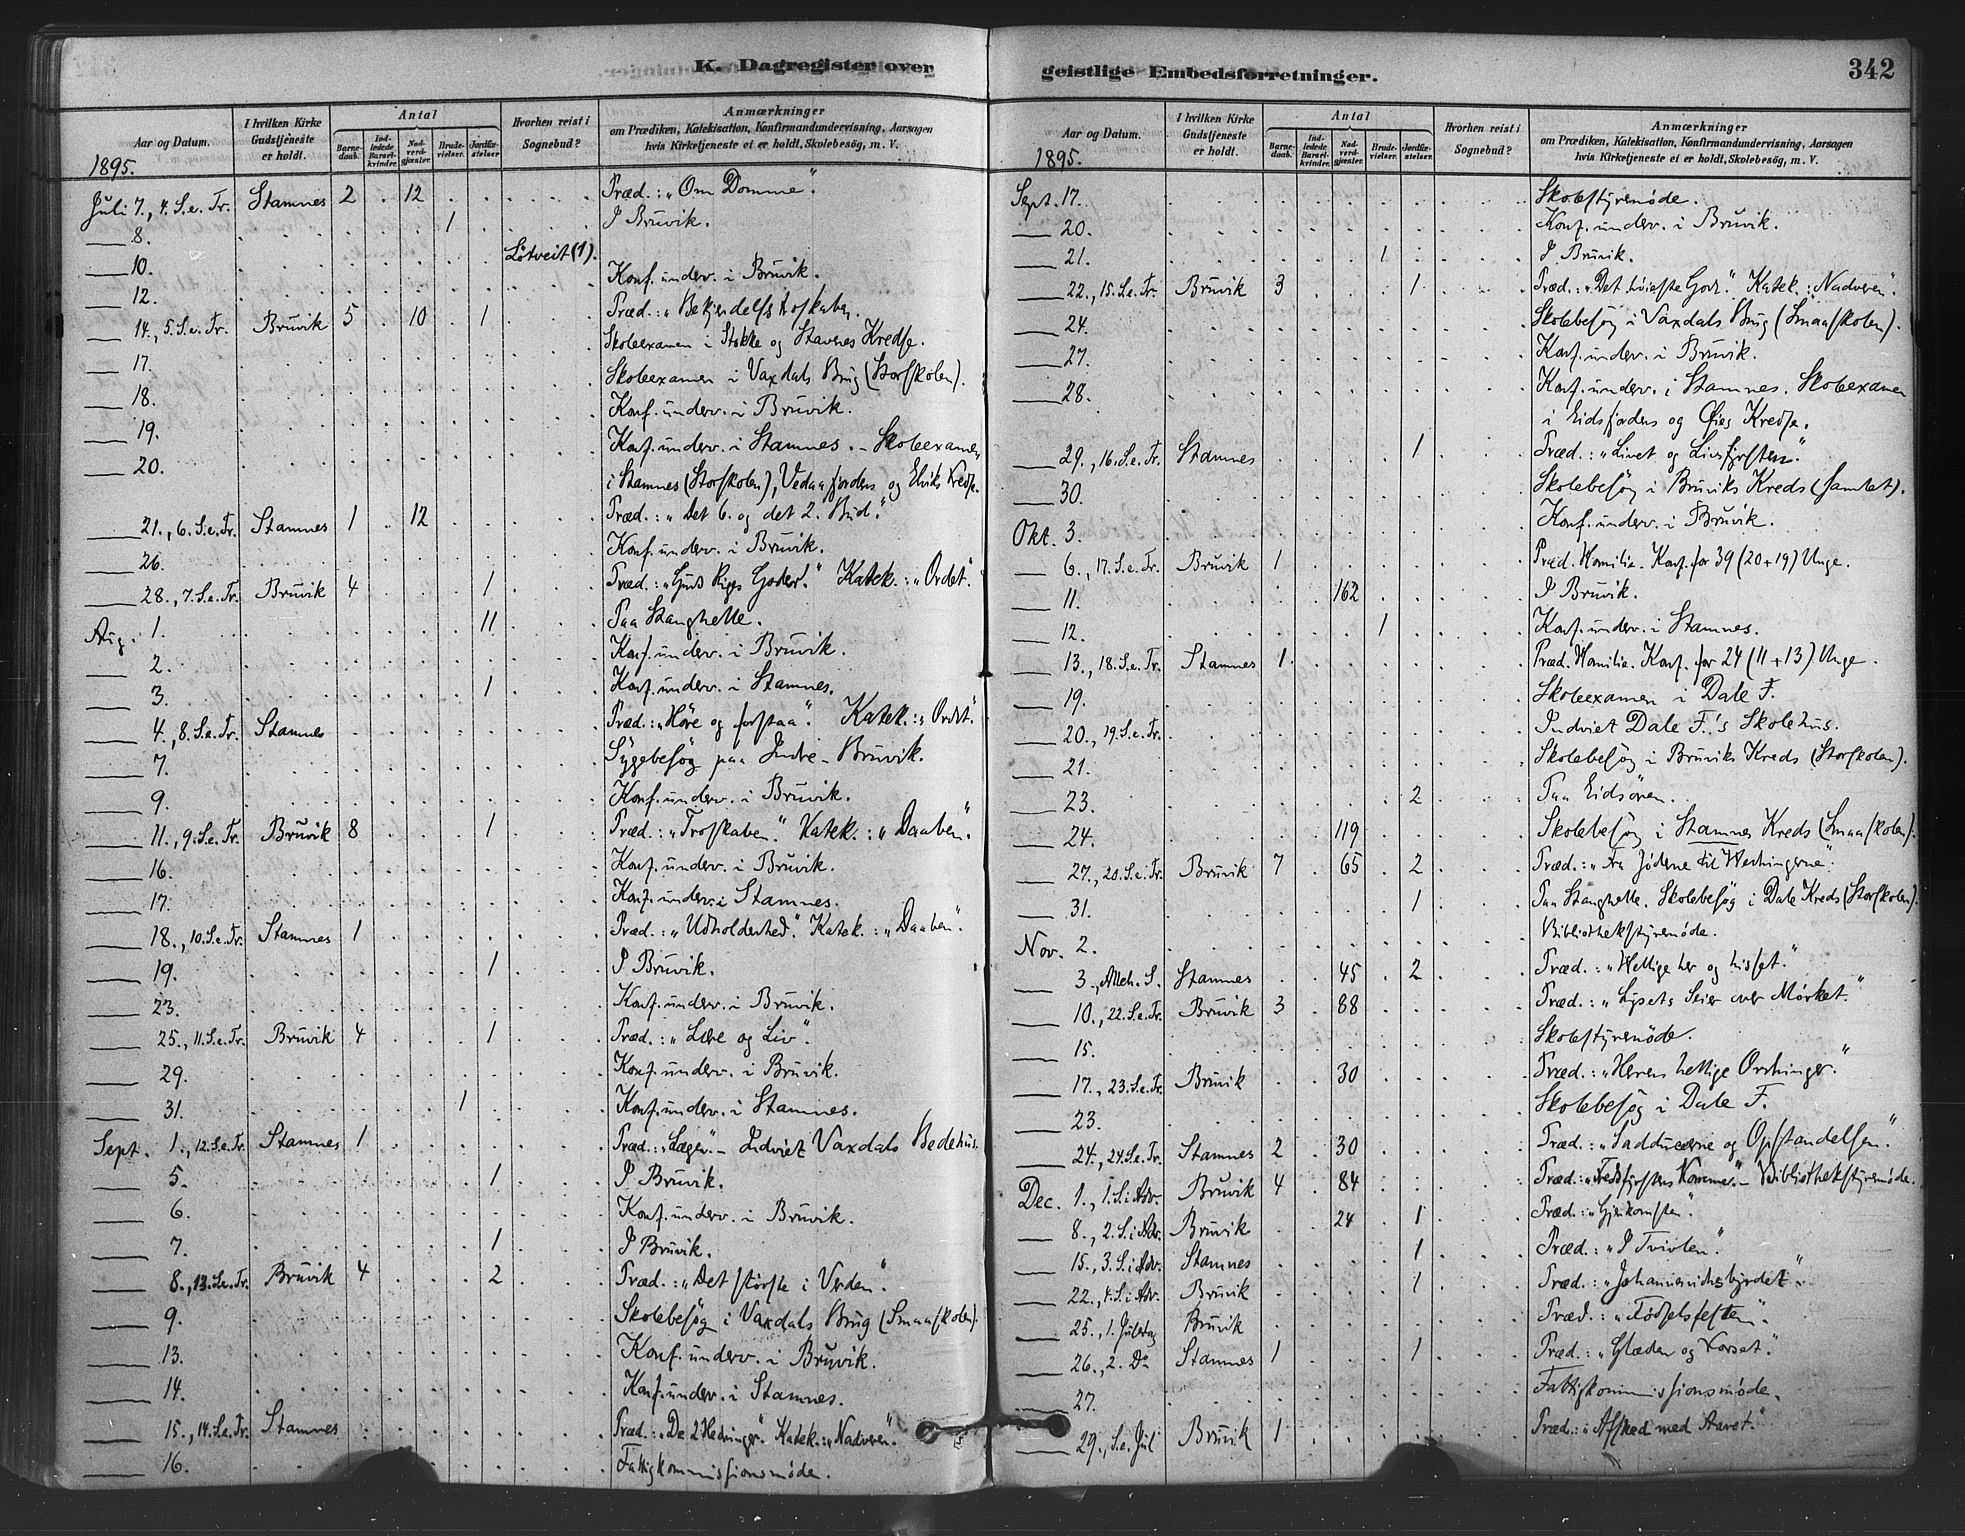 K. Dagregister over
Aar og Datum. I hvilken Kirke Gudstjeneste er holdt. Antal Barnedaab. Indledede Barselkvinder. Nadverdgjæster. Brudevielser. Jordfæstelser Hvorhen reist i Sognebud? Anmærkninger om Prædiken, Katekisation, Konfirmandundervisning, Aarsagen hvis Kirketjeneste ei er holdt, Skolebesög, m. V.
1895.
Juli 7., 4. S. e. Tr. Stamnes 2 . 12 . . . . . Præd.: „Om Domme".
8. . . . 1 . . . I Bruvik.
10. . . . Løtveit (1).
12. . . . Konf. underv. i Bruvik.
14., 5. S. e. Tr. Bruvik 5 . 10 . 1 . . . Præd.: „Bekjendelsstroskaben.
17. . . . Skoleexamen i Stokke og Stavenes Kredse.
18. . . . Skoleexamen i Vaxdals Brug (Storskolen).
19. . . . Konf. underv. i Bruvik.
20. . . . Konf. underv. i Stamnes. – Skoleexamen
i Stamnes (Storskolen), Vedaafjordens og Elviks Kredse.
21., 6. S. e. Tr. Stamnes 1 . 12 . . . Præd.: „Det 6. og det 2. Bud."
26. . . . Konf. underv. i Bruvik.
28., 7. S. e. Tr. Bruvik 4 . . . 1 . . . Præd.: „Guds Riges Goder". Katek.: „Ordet".
Aug. 1. . . . 11 . . . Paa Stanghelle.
2. . . . Konf. underv. i Bruvik.
3. . . . 1 . . . Konf. underv. i Stamnes.
4., 8. S. e. Tr. Stamnes . . . Præd.: „Høre og forstaa". Katek.: „Ordet".
7. . . . Sygebesøg paa Indre-Bruvik.
9. . . . Konf. underv. i Bruvik.
11., 9. S. e. Tr. Bruvik 8 . . . 1 . . . Præd.: „Troskaben." Katek.: „Daaben".
16. . . . Konf. underv. i Bruvik.
17. . . . Konf. underv. i Stamnes.
18., 10. S. e. Tr. Stamnes 1 . . . Præd.: „Udholdenhed". Katek.: „Daaben".
19. . . . 1 . . . I Bruvik.
23. . . . Konf. underv. i Bruvik.
25., 11. S. e. Tr. Bruvik 4 . . . 1 . . . Præd.: „Lære og Liv".
29. . . . Konf. underv. i Bruvik.
31. . . . 1 . . . Konf. underv. i Stamnes.
Sept. 1., 12. S. e. Tr. Stamnes 1 . . . Præd.: „Lægen". – Indviet Vaxdals Bedehus.
5. . . . 1 . . . I Bruvik.
6. . . . Konf. underv. i Bruvik.
7. . . . 1 . . . I Bruvik.
8., 13. S. e. Tr. Bruvik 4 . . . 2 . . . Præd.: „Det største i Verden".
9. . . . Skolebesøg i Vaxdals Brug (Smaaskolen).
13. . . . Konf. underv. i Bruvik.
14. . . . Konf. underv. i Stamnes.
15., 14. S. e. Tr. Stamnes . . . Præd.: „De 2 Hedninger". Katek.: „Nadveren".
16. . . . Fattigkommissionsmøde.
geistlige Embedsforretninger. 342
Aar og Datum. I hvilken Kirke Gudstjeneste er holdt. Antal Barnedaab. Indledede Barselkvinder. Nadverdgjæster. Brudevielser. Jordfæstelser. Hvorhen reist i Sognebud? Anmærkninger om Prædiken, Katekisation, Konfirmandundervisning, Aarsagen hvis Kirketjeneste ei er holdt, Skolebesög, m. V.
1895.
Sept. 17. . . . Skolestyremøde.
20. . . . Konf. underv. i Bruvik.
21. . . . 1 . . . I Bruvik.
22., 15. S. e. Tr. Bruvik 3 . . . 1 . . . Præd.: „Det høieste Gode". Katek.: „Nadveren".
24. . . . Skolebesøg i Vaxdals Brug (Smaaskolen).
27. . . . Konf. underv. i Bruvik.
28. . . . Konf. underv. i Stamnes. Skoleexamen
i Eidsfjordens og Øies Kredse.
29., 16. S. e. Tr. Stamnes . . . 1 . . . Præd.: „Livet og Livsfyrsten".
30. . . . Skolebesøg i Bruviks Kreds (samlet).
Okt. 3. . . . Konf. underv. i Bruvik.
6., 17. S. e. Tr. Bruvik 1 . . . Præd. Homilie. Konf. for 39 (20+19) Unge.
11. . . . 162 . . . I Bruvik.
12. . . . 1 . . . Konf. underv. i Stamnes.
13., 18. S. e. Tr. Stamnes 1 . . . Præd. Homilie. Konf. for 24 (11+13) Unge.
19. . . . Skoleexamen i Dale F.
20., 19. S. e. Tr. . . . Indviet Dale F.'s Skolehus.
21. . . . Skolebesøg i Bruviks Kreds (Storskolen).
23. . . . 2 . . . Paa Eidsören.
24. . . . 119 . . . Skolebesøg i Stamnes Kreds (Smaaskolen).
27., 20. S. e. Tr. Bruvik 7 . 65 . 2 . . . Præd.: „Fra Jøderne til Hedningerne".
31. . . . 1 . . . Paa Stanghelle. Skolebesøg i Dale Kreds (Storskolen).
Nov. 2. . . . Bibliothekstyremøde.
3., Alleh. S. Stamnes . . 45 . 2 . . . Præd.: „Hellige her og hisset."
10., 22. S. e. Tr. Bruvik 3 . 88 . . . Præd.: „Lysets Seier over Mørket."
15. . . . Skolestyremøde.
17., 23. S. e. Tr. Bruvik . . 30 . . . Præd.: „Herrens hellige Ordninger."
23. . . . Skolebesøg i Dale F.
24., 24. S. e. Tr. Stamnes 2 . 30 . . . Præd.: „Sadducæerne og Opstandelsen".
Dec. 1., 1. S. i Adv. Bruvik 4 . 84 . . . Præd.: „Fredsfyrstens Komme". – Bibliothekstyremøde.
8., 2. S. i Adv. Bruvik . . 24 . 1 . . . Præd.: „Gjenkomsten".
15., 3. S. i Adv. Stamnes . . . 1 . . . Præd.: „I Tvivlen".
22., 4. S. i Adv. Bruvik . . . 1 . . . Præd.: „Johannesvidnesbyrdet".
25., 1. Juledag Bruvik . . . Præd.: „Fødselsfesten".
26., 2. Do Stamnes 1 . . . 1 . . . Præd.: „Glæden og Korset".
27. . . . Fattigkommissionsmøde.
29., S. e. Jul Bruvik 1 . . . Præd.: „Afsked med Aaret."